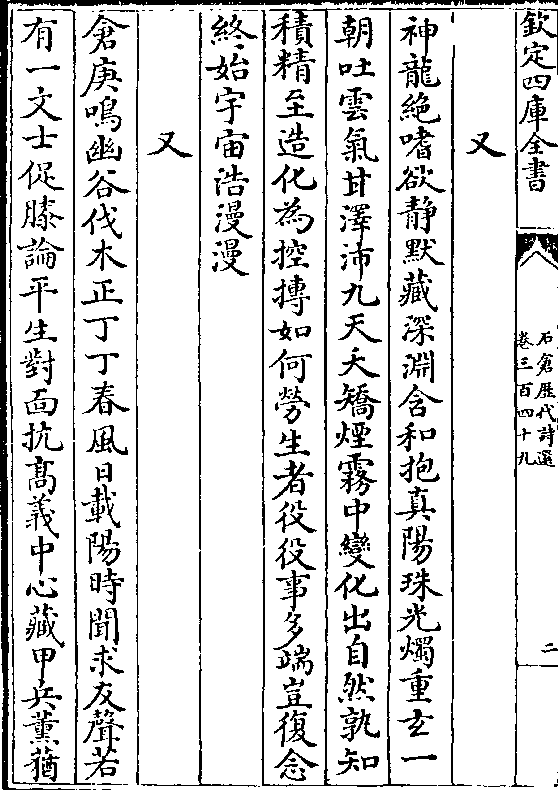 欽定四庫全書
石倉歷代詩選
卷三百四十九
二
又
神龍絶嗜欲静默藏深淵含和抱真陽珠光燭重玄一
朝吐雲氣甘澤沛九天夭矯煙霧中變化出自然孰知
積精至造化為控摶如何勞生者役役事多端豈復念
終始宇宙浩漫漫
又
倉庚鳴幽谷伐木正丁丁春風日載陽時聞求友聲若
有一文士促膝論平生對面抗髙義中心藏甲兵薫蕕